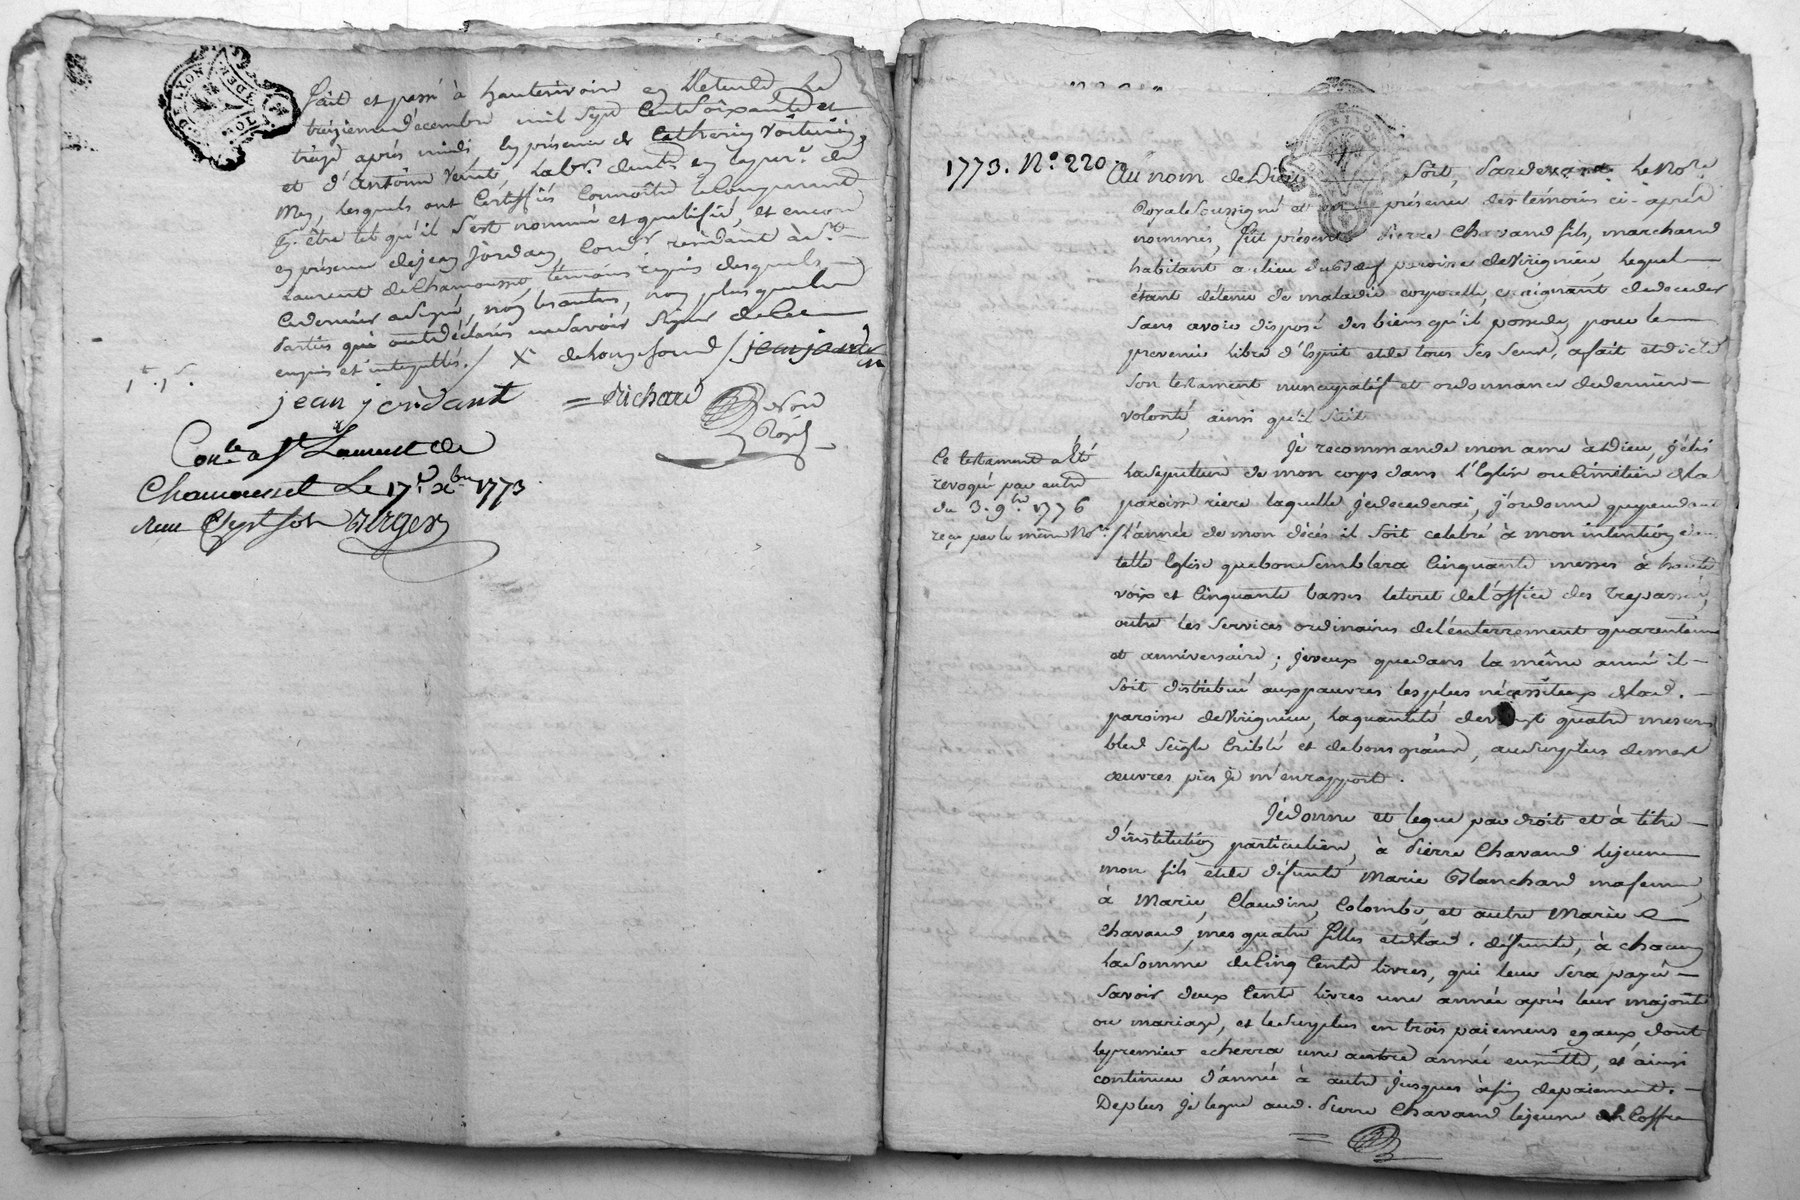 DE LYON
fait et passé à hauterivoire en l'Etude le
treizieme decembre mil sept cent soixante et
treize après midi en présence de Catherin Voituriez
et d'Antoine labr.
lesquels ont certiffiés connoître le comparant
p. être tel qu'il s'est nommé et qualifié, et encore
en présence de jean jordan, résidant à St.
Laurent de Chamousset, témoins requis desquels
ce dernier a signé, non les autres, non plus que les
parties qui ont déclarés ne savoir signer de ce
enquis et interpellés. / X /
jean jordant = Richard
Not
Royal
Con.lé a St Laurent de
Chamousset Le 17e xbre 1773
reçu sept sols Verger
1773. N.º 220 Au nom de Dieu soit, Pardevant le No.re
Royal soussigné et en présence des témoins ci-après
nommés, fut présent Pierre Chavand fils, marchand
habitant a lieu du paroisse de Virigneu, lequel
étant détenu de maladie corporelle, craignant de deceder
sans avoir disposé des biens qu'il possede, pour le
prevenir libre d'Esprit et de tous ses sens, a fait et dicté
son testament nuncupatif et ordonnance de derniere
volonté, ainsi qu'il suit
Ce testament a été
revoqué par autre
du 3. 9.bre 1776
reçu par le même No.re
Je recommande mon ame à Dieu, j'élis
la sepulture de mon corps dans l'Eglise ou Cimetiere de la
paroisse riere laquelle je decederai, j'ordonne que pendant
l'année de mon décès il soit celebré à mon intention dans
telle Eglise que bon semblera Cinquante messes à haute
voix et Cinquante basses le tout de l'office des trepassés,
outre les services ordinaires de l'enterrement quarantaine
et anniversaire; je veux que dans la même année il
soit distribué aux pauvres les plus nécessiteux de lad.
paroisse de Virigneu, la quantité de vingt quatre mesures
bled seigle criblé et de bons grains, au surplus de mes
œuvres pies je m'en rapporte.
Je donne et legue par droit et à titre
d'institution particuliere, à Pierre Chavand le jeune
mon fils et de défunte Marie Blanchard ma femme,
à Marie, Claudine, Colombe, et autre Marie
Chavand, mes quatre filles et de lad. défunte, à chacun
la somme de Cinq Cents livres, qui leur sera payée
savoir deux Cents livres une année après leur majorité
ou mariage, et le surplus en trois paiemens egaux dont
le premier echerra une autre année ensuitte, et ainsi
continuer d'année à autre jusques à fin de paiement.
De plus je legue aud. Pierre Chavand le jeune un Coffre